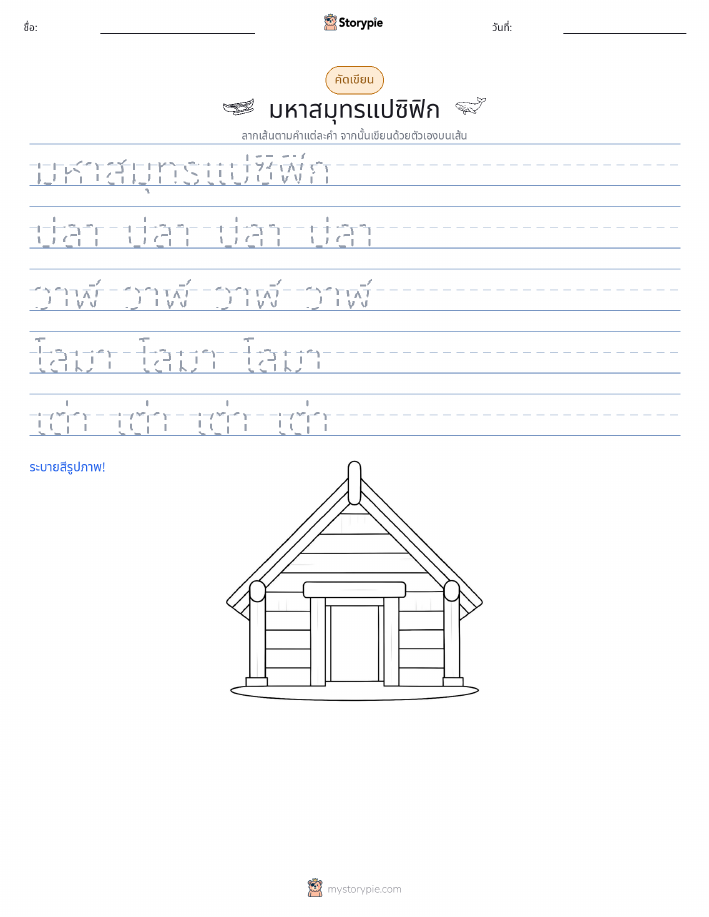 ชื่อ: Storypie วันที่:
คัดเขียน
มหาสมุทรแปซิฟิก
ลากเส้นตามคำแต่ละคำ จากนั้นเขียนด้วยตัวเองบนเส้น
มหาสมุทรแปซิฟิก
ปลา ปลา ปลา ปลา
วาฬ วาฬ วาฬ วาฬ
โลมา โลมา โลมา
เต่า เต่า เต่า เต่า
ระบายสีรูปภาพ!
mystorypie.com